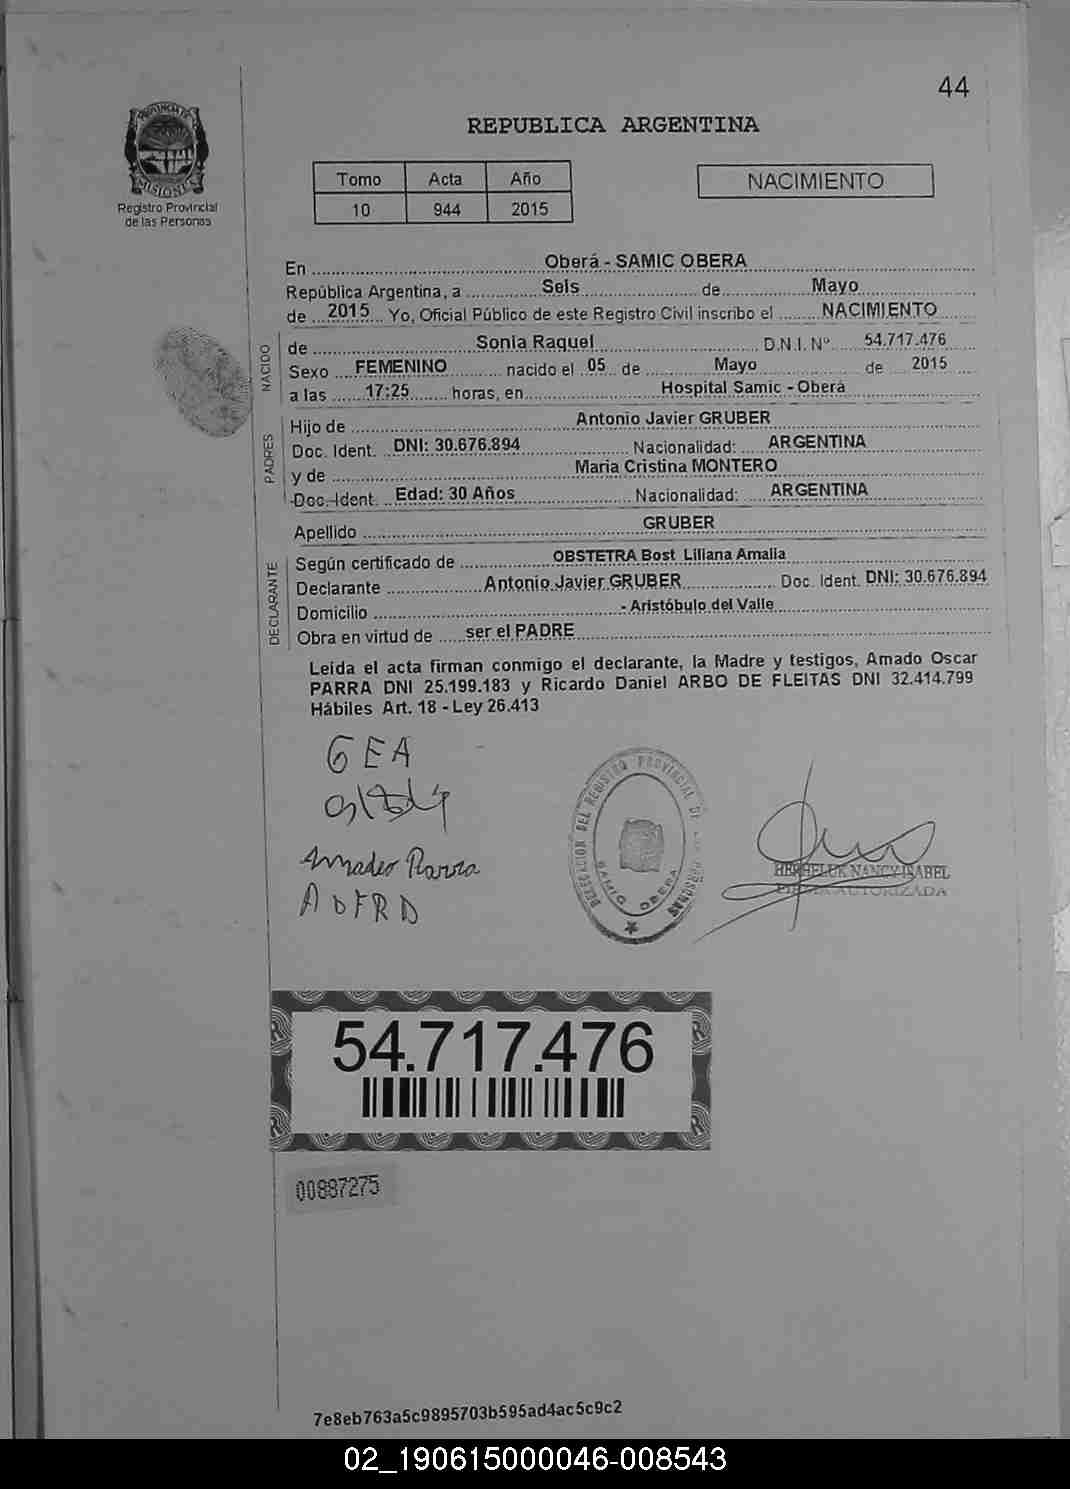 44
REPUBLICA ARGENTINA
PROVINCIA DE
MISIONES
Registro Provincial
de las Personas
Tomo Acta Año
10 944 2015
NACIMIENTO
En Oberá - SAMIC OBERA
República Argentina, a Seis de Mayo
de 2015 Yo, Oficial Público de este Registro Civil inscribo el NACIMIENTO
NACIDO
de Sonia Raquel D.N.I. Nº 54.717.476
Sexo FEMENINO nacido el 05 de Mayo de 2015
a las 17:25 horas, en Hospital Samic - Oberá
PADRES
Hijo de Antonio Javier GRUBER
Doc. Ident. DNI: 30.676.894 Nacionalidad: ARGENTINA
y de Maria Cristina MONTERO
Doc. Ident. Edad: 30 Años Nacionalidad: ARGENTINA
Apellido GRUBER
DECLARANTE
Según certificado de OBSTETRA Bost Liliana Amalia
Declarante Antonio Javier GRUBER Doc. Ident. DNI: 30.676.894
Domicilio - Aristóbulo del Valle
Obra en virtud de ser el PADRE
Leida el acta firman conmigo el declarante, la Madre y testigos, Amado Oscar
PARRA DNI 25.199.183 y Ricardo Daniel ARBO DE FLEITAS DNI 32.414.799
Hábiles Art. 18 - Ley 26.413
GEA
Amadeo Parra
ADFRD
DELEGACION DEL REGISTRO PROVINCIAL DE PERSONAS
SAMIC OBERA
NANCY ISABEL
AUTORIZADA
54.717.476
00887275
7e8eb763a5c9895703b595ad4ac5c9c2
02_190615000046-008543